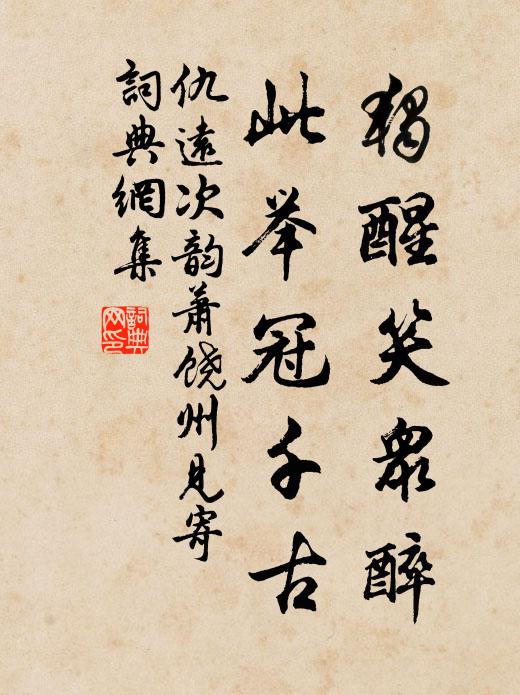 獨醒笑衆醉
此举冠千古
仇遠次韵萧饶州見寄
詞典網集
詞典網印